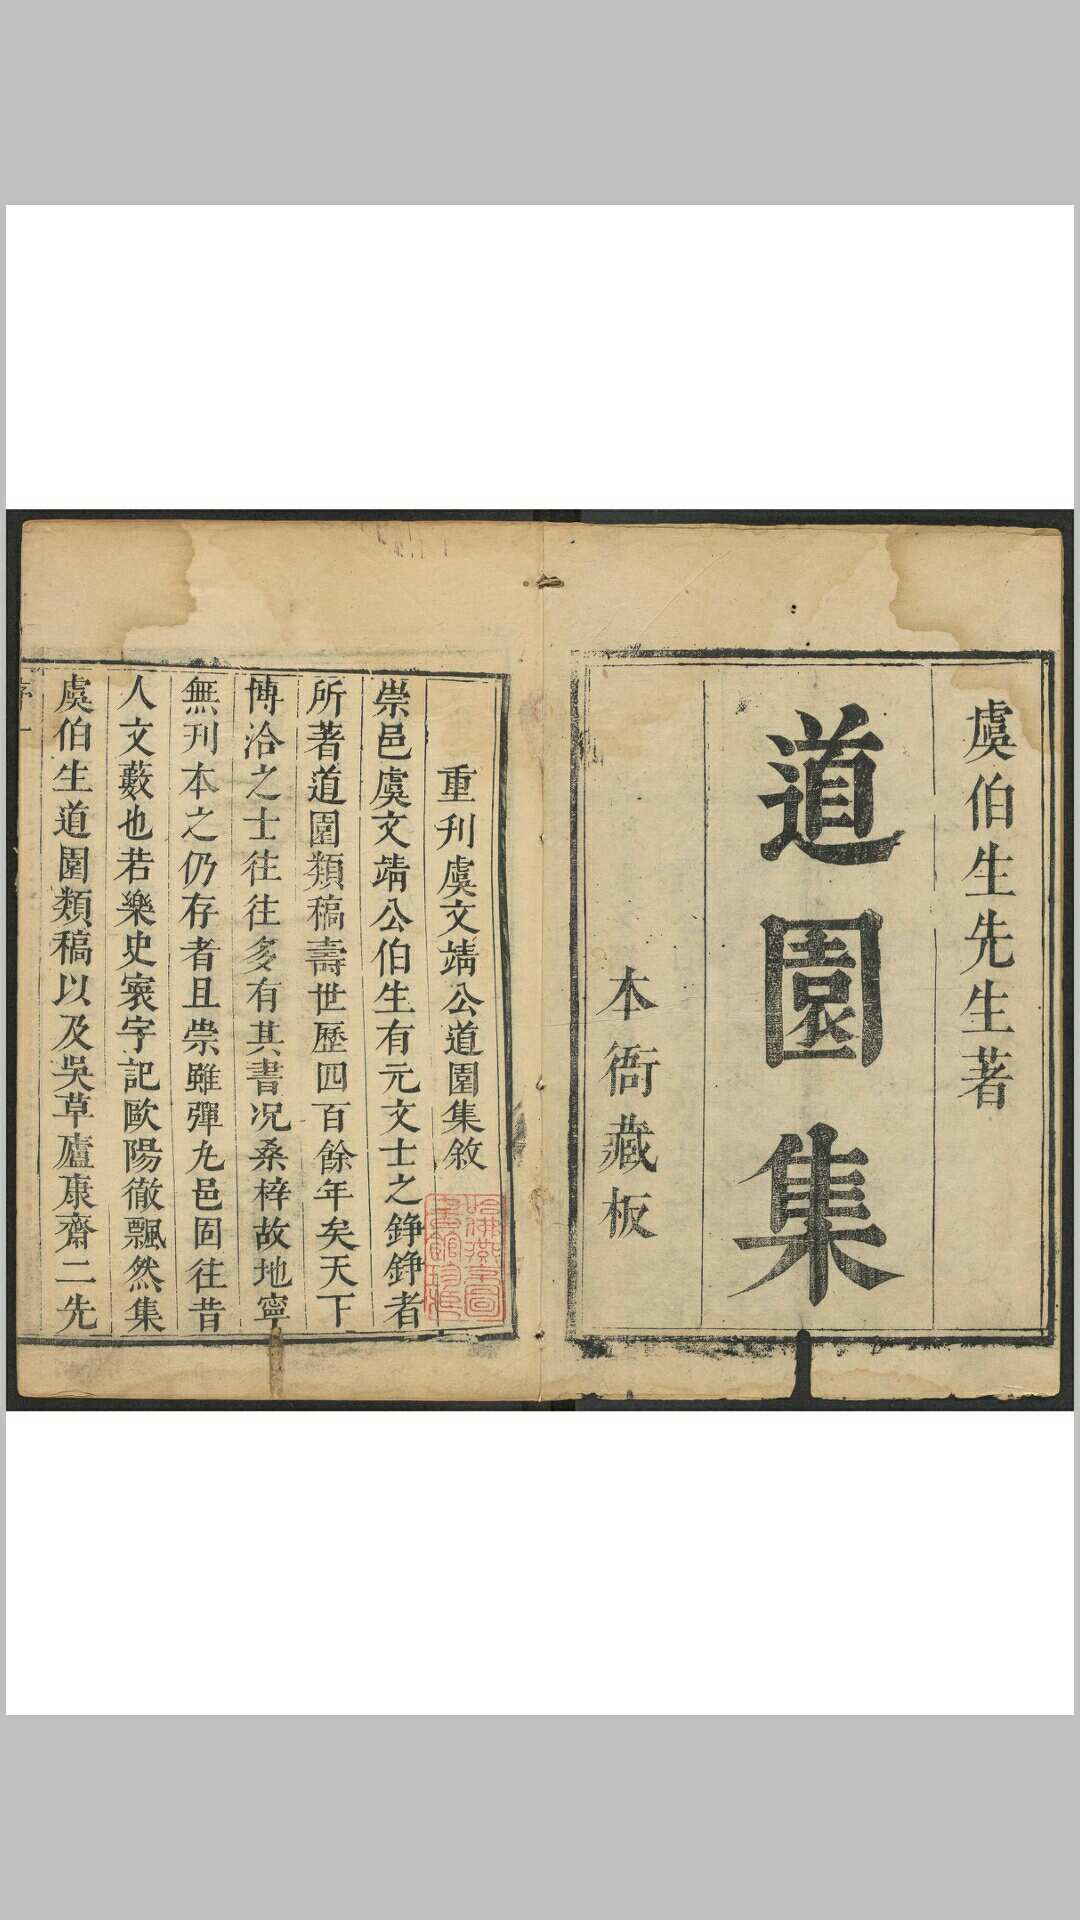 虞伯生先生著
道園集
本衙藏板
重刊虞文靖公道園集敘
崇邑虞文靖公伯生有元文士之錚錚者
所著道園類稿壽世歷四百餘年矣天下
博洽之士往往多有其書况桑梓故地寧
無刊本之仍存者且崇雖彈丸邑固往昔
人文藪也若樂史寰宇記歐陽徹飄然集
虞伯生道園類稿以及吳草廬康齋二先
哈佛燕京圖
書館珍藏